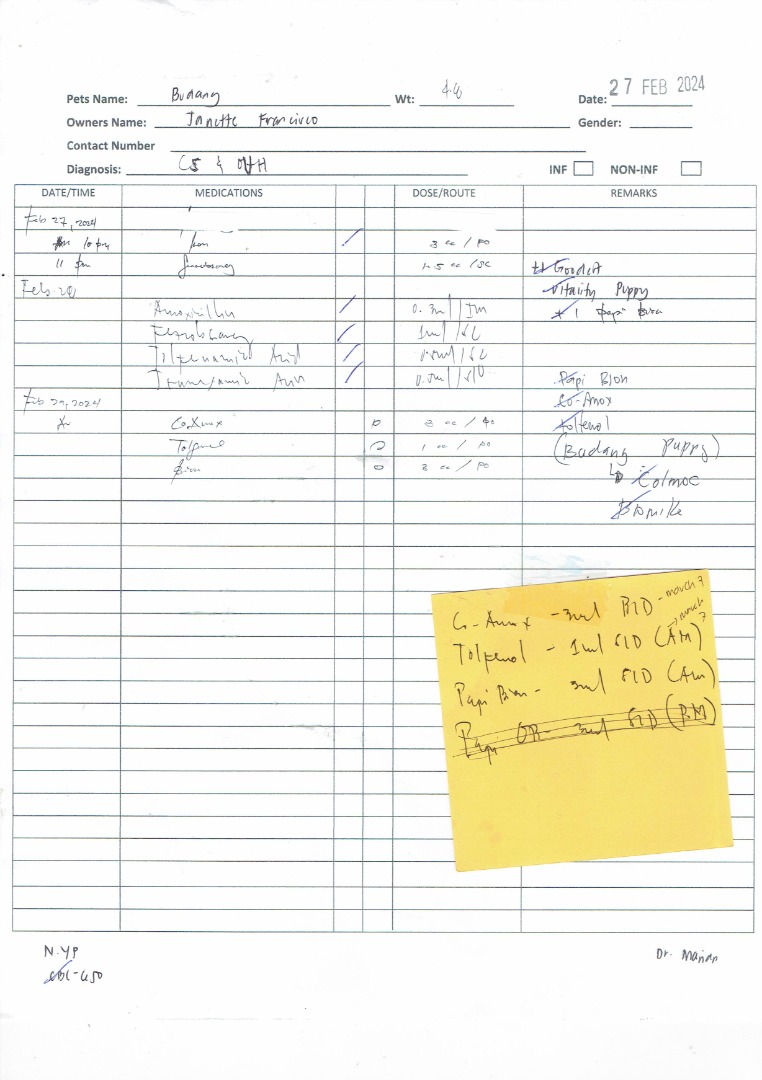 Pets Name: Budang Wt: Date: 27 FEB 2024
Owners Name: Janette Francisco Gender:
Contact Number
Diagnosis: CS & OVH INF NON-INF
DATE/TIME MEDICATIONS DOSE/ROUTE REMARKS
Feb 27, 2024
10 pm 3 cc / PO
11 pm 1.5 cc / SC Goodet
Feb. 28 Vitality Puppy
Amoxicillin 0. 3ml / IM 1 Papi Bion
1ml / SC
Tolfenamic Acid 0.5ml / SC
Tranexamic Acid Papi Bion
Feb 29, 2024 Co-Amox
Co-Amox 3 cc / PO Tolfenol
Tolfenol 1 cc / PO (Budang Puppy)
Bion 3 cc / PO Colmoc
Biomike
Co-Amox - 3ml BID - march 7
Tolfenol - 1ml SID (AM) → march 7
Papi Bion - 3ml SID (Am)
Papi OB - 3ml SID (PM)
N.YP
CBC-450
Dr. Marian